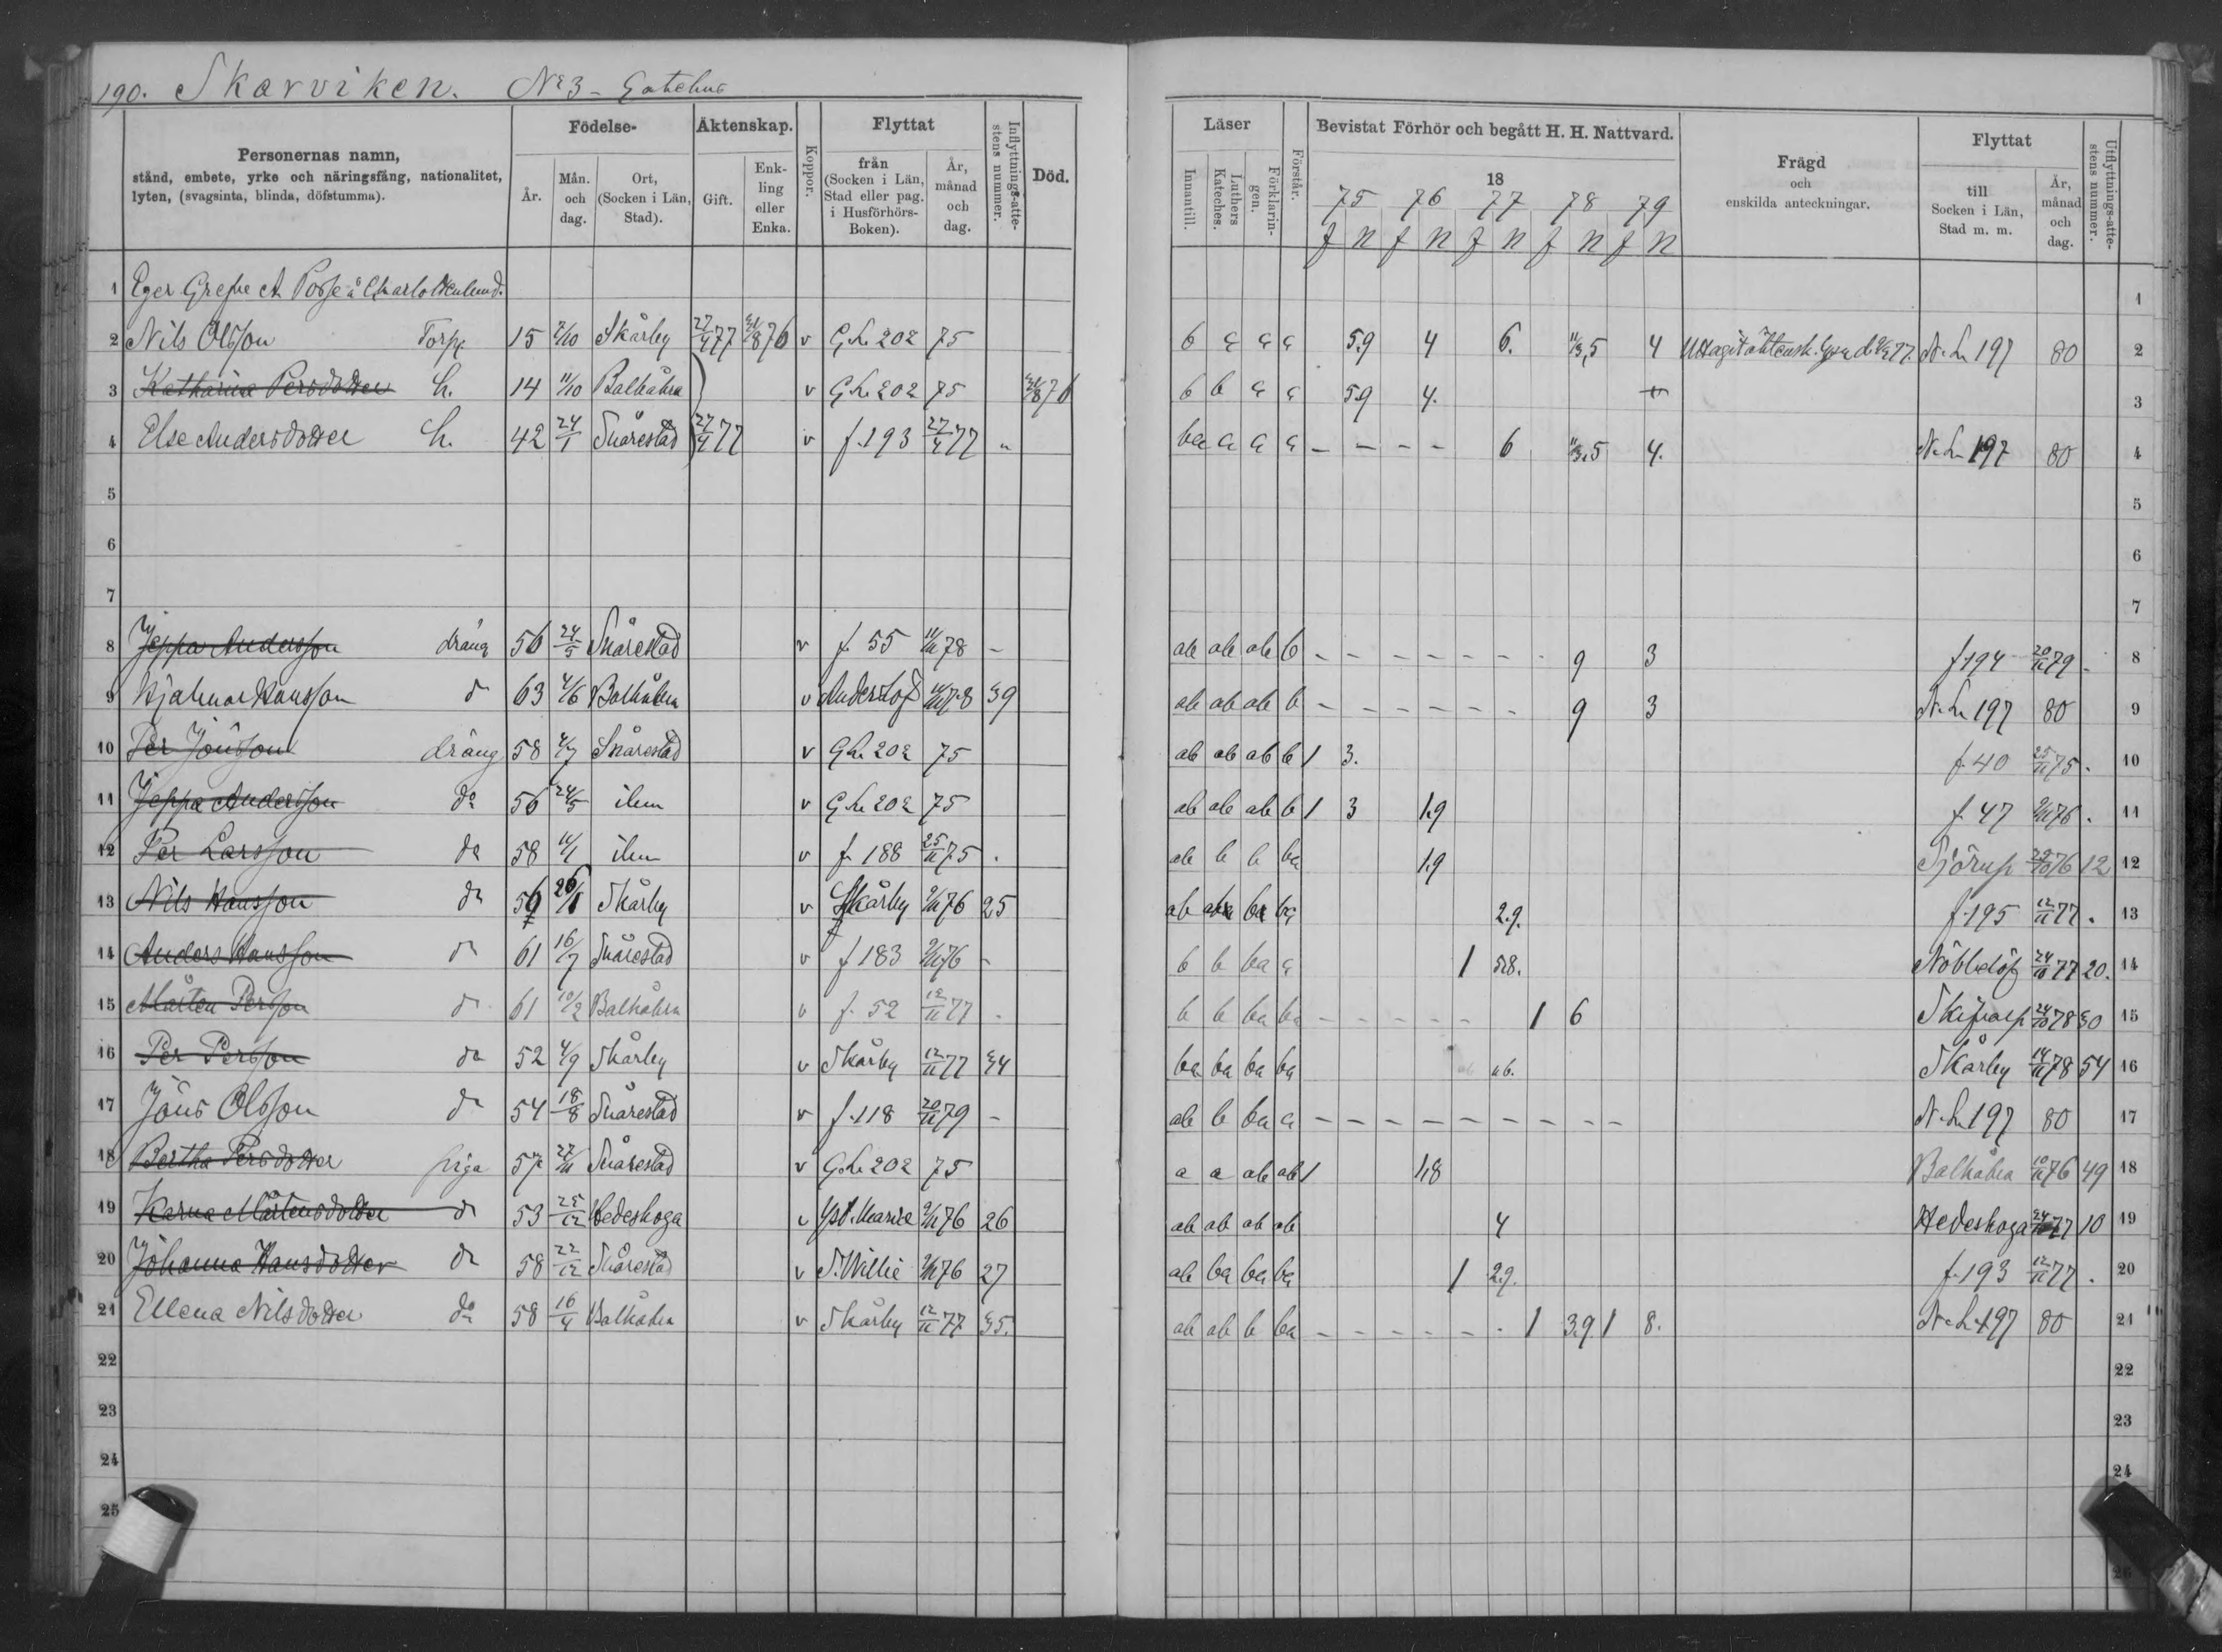 190. Skarviken. № 3 - Gatehus
Personernas namn,
stånd, embete, yrke och näringsfång, nationalitet,
lyten, (svagsinta, blinda, döfstumma).
Födelse-
År. Mån. och dag. Ort, (Socken i Län, Stad).
Äktenskap.
Gift. Enkling eller Enka.
Koppor.
Flyttat
från (Socken i Län, Stad eller pag. i Husförhörs-Boken). År, månad och dag.
Inflyttnings-attestens nummer.
Död.
Läser
Innantill. Luthers Kateches. Förklaringen. Förstår.
Bevistat Förhör och begått H. H. Nattvard.
18
75 76 77 78 79
f n f n f n f n f n
Frägd
och
enskilda anteckningar.
Flyttat
till Socken i Län, Stad m. m. År, månad och dag.
Utflyttnings-attestens nummer.
1 Eger Grefve A Posse å Charlottenlund. 1
2 Nils Olsson Torp 15 2/10 Skårby 27/4 77 76 v G.L. 202 75 b a a a 5.9 4 6. 5 4 N.L. 197 80 2
3 Katharina Persdotter h. 14 11/10 Balkåkra v G.L. 202 75 76 b b a a 5.9 4. + 3
4 Else Andersdotter h. 42 24/1 Snårestad 27/4 77 v f. 193 27/4 77 " ba a a a – – – – 6 5 4. N.L. 197 80 4
5 5
6 6
7 7
8 Jeppa Andersson dräng 56 24/5 Snårestad v f. 55 78 – ab ab ab b – – – – – – – 9 3 f. 194 20/11 79 - 8
9 Hjalmar Hansson d 63 4/6 Balkåkra v Anderslöf 78 39 ab ab ab b – – – – – – 9 3 N.L. 197 80 9
10 Per Jönsson dräng 58 4/7 Snårestad v G.L. 202 75 ab ab ab b 1 3. f. 40 25/11 75 . 10
11 Jeppa Andersson do 56 24/5 ibm v G.L. 202 75 ab ab ab b 1 3 1.9 f. 47 76 . 11
12 Per Larsson do 58 ibm v f. 188 25/11 75 . ab b b ba 1.9 Sjörup 76 12 12
13 Nils Hansson do 26/1 Skårby v Skårby 76 25 ab ba 2.9. f. 195 12/11 77 . 13
14 Anders Hansson do 61 16/7 Snårestad v f 183 76 - b b ba a 1 5.8. Nöbbelöf 24/10 77 20. 14
15 Mårten Persson do 61 10/2 Balkåkra v f. 52 12/11 77 - b b ba ba – – – – – 1 6 Skifarp 24/10 78 30 15
16 Per Persson do 52 4/9 Skårby v Skårby 12/11 77 34 ba ba ba ba Skårby 14/11 78 54 16
17 Jöns Olsson do 54 18/8 Snårestad v f. 118 20/11 79 – ab b ba a – – – – – – – – – N.L. 197 80 17
18 Bertha Persdotter piga 57 27/11 Snårestad v G.L. 202 75 a a ab ab 1 1.8 Balkåkra 10/11 76 49 18
19 Karna Mårtensdotter do 53 25/12 Hedeskoga v Yst. Mariæ 76 26 ab ab ab ab 4 Hedeskoga 77 10 19
20 Johanna Hansdotter do 58 22/12 Snårestad v S. Willie 76 27 ab ba ba ba 1 2.9. f. 193 12/11 77 . 20
21 Ellena Nilsdotter do 58 16/4 Balkåkra v Skårby 12/11 77 35. ab ab b ba – – – – – – - 1 3.9 1 8. N.L. 197 80 21
22 22
23 23
24 24
25